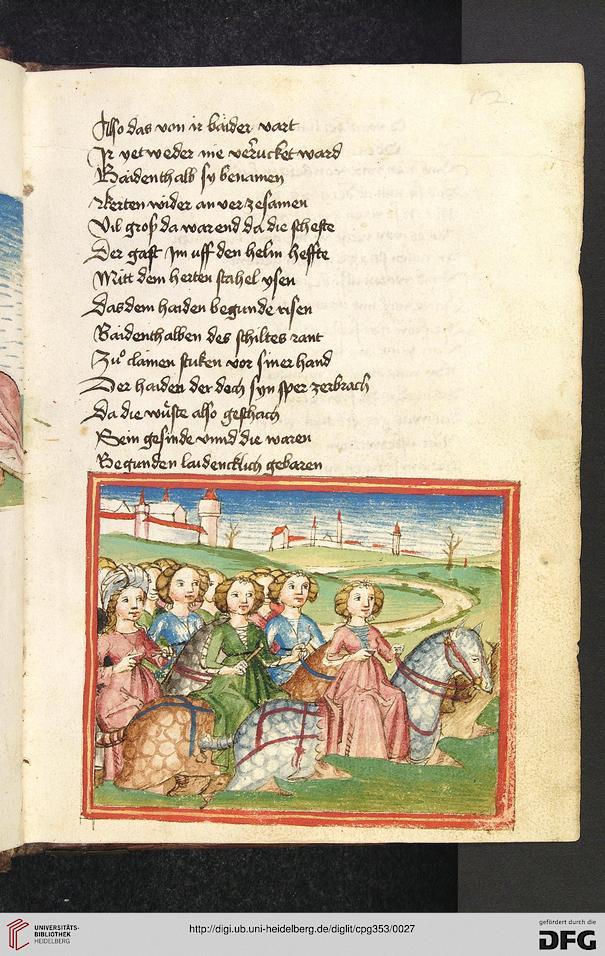 12
Also das von ir baider vart
Ir yetweder nie verrucket ward
Baidenthalb sy benamen
kerten wider an ver zesamen
Vil groß da warend da die scheffte
Der gast Im uff den helm heffte
Mitt dem herten stahel ysen
Das dem haiden begunde risen
Baidenthalben des schiltes rant
Zuͦ clainen stuken vor siner hand
Der haiden der doch syn sper zerbrach
Da die wuͤste also geschach
Sein gesinde vnnd die waren
Begunden laidencklich gebaren
UNIVERSITÄTS-
BIBLIOTHEK
HEIDELBERG
http://digi.ub.uni-heidelberg.de/diglit/cpg353/0027
gefördert durch die
DFG